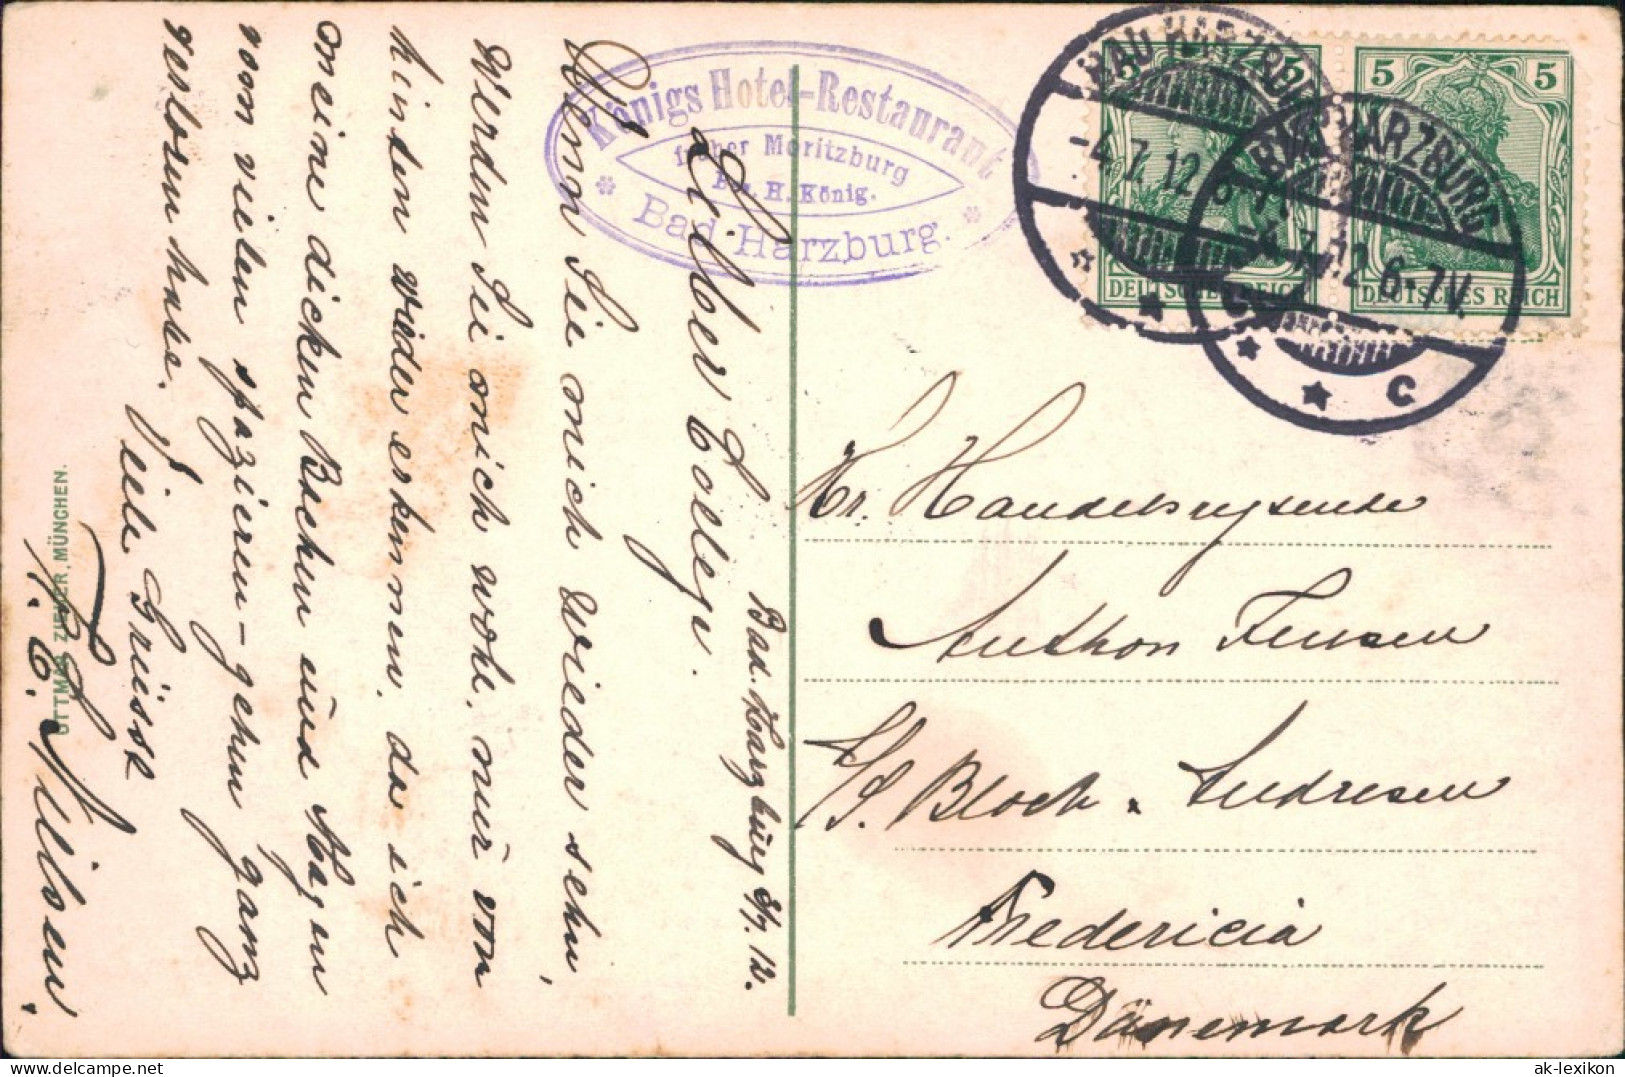 Bad. Harzburg 3/7. 12.
Lieber College.
Wenn Sie mich wieder sehn,
Werden Sie mich wohl, nur von
hinten wieder erkennen, da ich
meine dicken Backen und Magen
vom vielen spazieren-gehen ganz
verloren habe.
Viele Grüsse
Königs Hotel-Restaurant
früher Moritzburg
Bes. H. König.
Bad Harzburg.
OTTMAR ZIEHER, MÜNCHEN.
BAD HARZBURG
-4.7.12
BAD HARZBURG
-4.7.12 6-7V.
c
5 5
DEUTSCHES REICH
5 5
DEUTSCHES REICH
Hr. Handelsrejsende
Anthon Jensen
Bloch & Andresen
Fredericia
Dänemark
ak-lexikon